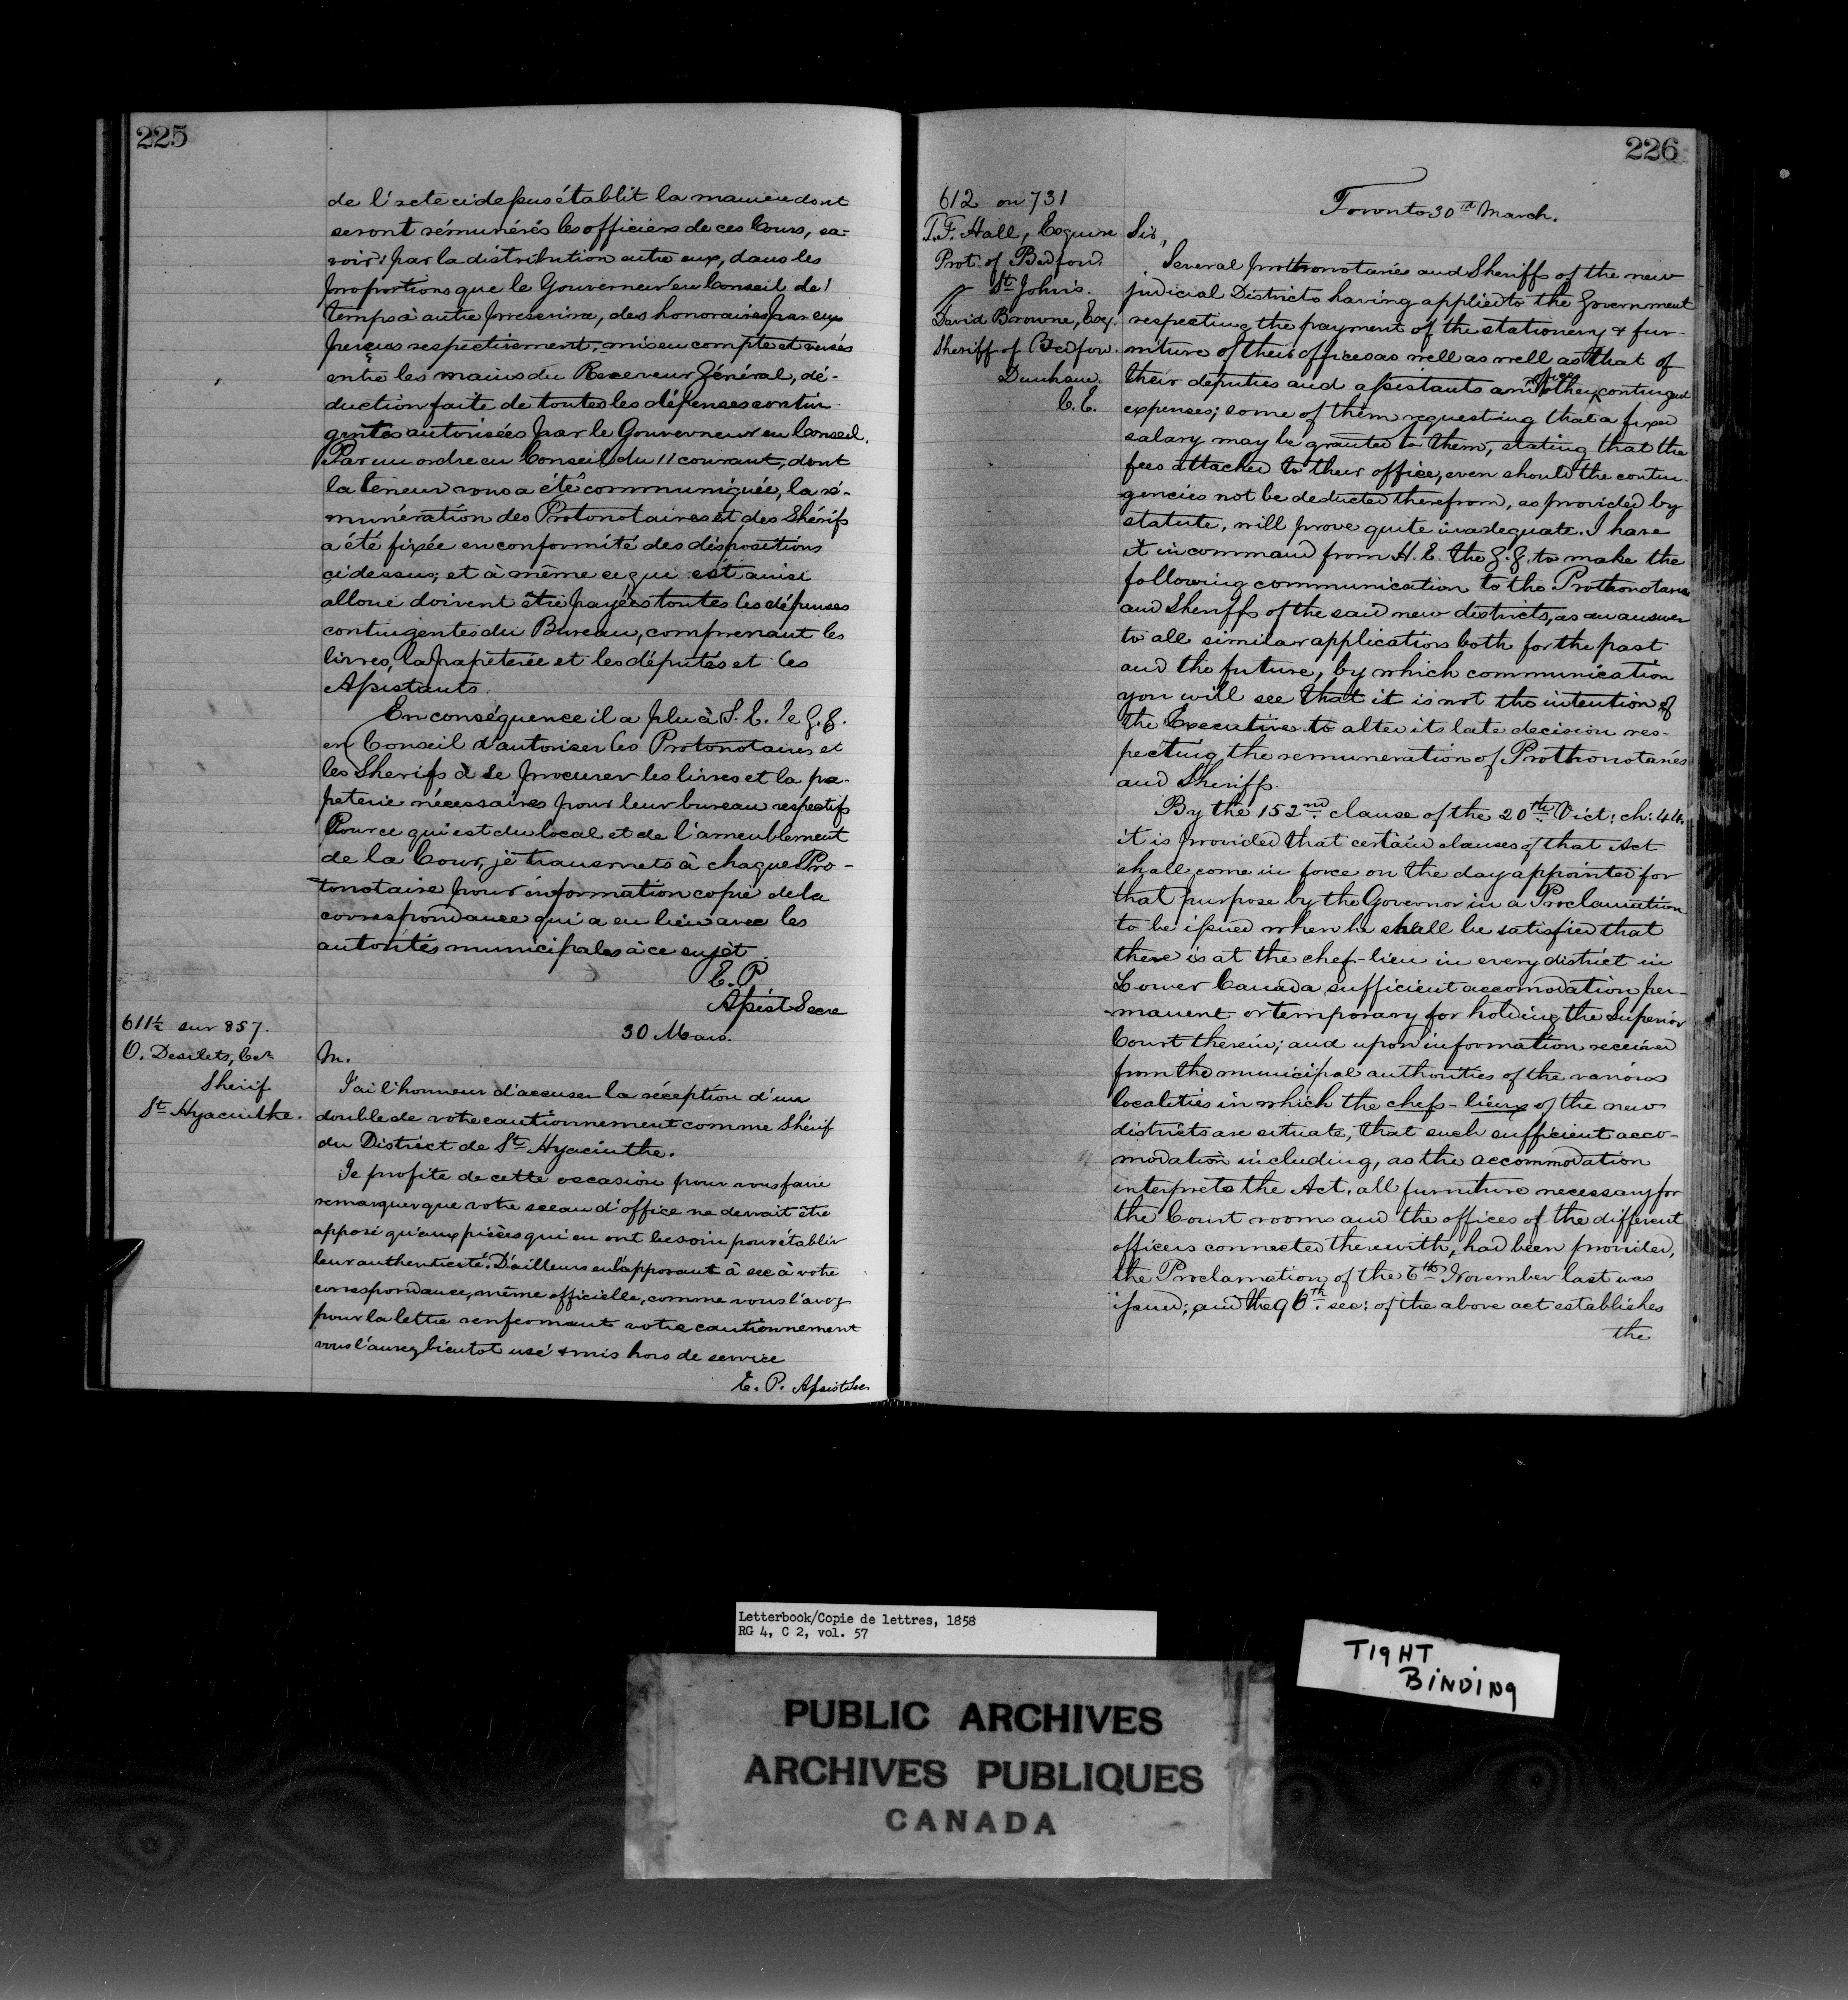 225
de l'acte cidessus établit la manière dont
seront rémunérés les officiers de ces Cours, sa-
voir: par la distribution entre eux, dans les
proportions que le Gouverneur en Conseil de
temps à autre prescrira, des honoraires par eux
perçus respectivement, mis en compte et versés
entre les mains du Receveur Général, dé-
duction faite de toutes les dépenses contin-
gentes autorisées par le Gouverneur en Conseil.
Par un ordre en Conseil du 11 courant, dont
la teneur vous a été communiquée, la ré-
munération des Protonotaires et des Shérifs
a été fixée en conformité des dispositions
cidessus; et à même ce qui est ainsi
alloué doivent être payées toutes les dépenses
contingentes du Bureau, comprenant les
livres, la papeterie et les députés et les
Assistants.
En conséquence il a plu à S. E. le G. G.
en Conseil d'autoriser les Protonotaires et
les Sherifs à se procurer les livres et la pa-
peterie nécessaires pour leur bureau respectifs
Pour ce qui est du local et de l'ameublement
de la Cour, je transmets à chaque Pro-
tonotaire pour information copie de la
correspondance qui a eu lieu avec les
autorités municipales à ce sujet.
E. P.
Assist Secre
611½ sur 857.
O. Desilets, Ecr
Shérif
St Hyacinthe.
30 Mars.
M.
J'ai l'honneur d'accuser la réception d'un
double de votre cautionnement comme Shérif
du District de St Hyacinthe.
Je profite de cette occasion pour vous faire
remarquer que votre sceau d'office ne devrait être
apposé qu'aux pièces qui en ont besoin pour établir
leur authenticité. D'ailleurs en l'apposant à sec à votre
correspondance, même officielle, comme vous l'avez
pour la lettre renfermant votre cautionnement
vous l'aurez bientot usé & mis hors de service
E. P. Assist Sec
226
612 on 731
T. F. Hall, Esquire
Prot. of Bedford.
St John's.
David Browne, Esq.
Sheriff of Bedford.
Dunham.
C. E.
Toronto 30th March.
Sir,
Several prothonotaries and Sheriffs of the new
judicial Districts having applied to the Government
respecting the payment of the stationery & fur-
niture of their offices as well as well as that of
their deputies and assistants and other office contingent
expenses; some of them requesting that a fixed
salary may be granted to them, stating that the
fees attached to their office, even should the contin-
gencies not be deducted therefrom, as provided by
statute, will prove quite inadequate. I have
it in command from H. E. the G. G. to make the
following communication to the Prothonotaries
and Sheriffs of the said new districts, as an answer
to all similar applications both for the past
and the future, by which communication
you will see that it is not the intention of
the Executive to alter its late decision res-
pecting the remuneration of Prothonotaries
and Sheriffs.
By the 152nd. clause of the 20th. Vict: ch: 44.
it is provided that certain clauses of that Act
shall come in force on the day appointed for
that purpose by the Governor in a Proclamation
to be issued when he shall be satisfied that
there is at the chef-lieu in every district in
Lower Canada sufficient accomodation per-
manent or temporary for holding the Superior
Court therein; and upon information received
from the municipal authorities of the various
localities in which the chefs-lieux of the new
districts are situate, that such sufficient acco-
modation including, as the accommodation
interprets the Act, all furniture necessary for
the Court rooms and the offices of the different
officers connected therewith, had been provided,
the Proclamation of the 6th November last was
issued; and the 96th. sec: of the above act establishes
the
Letterbook/Copie de lettres, 1858
RG 4, C 2, vol. 57
TIGHT
BINDING
PUBLIC ARCHIVES
ARCHIVES PUBLIQUES
CANADA